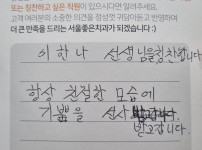 또는 칭찬하고 싶은 직원이 있으시다면 알려주세요.
고객 여러분의 소중한 의견을 정성껏 귀담아듣고 반영하며
더 큰 만족을 드리는 서울좋은치과가 되겠습니다 :)
이 한나 선생님을 칭찬합니다.
항상 친절한 모습에
기쁨을 선사
받고갑니다.